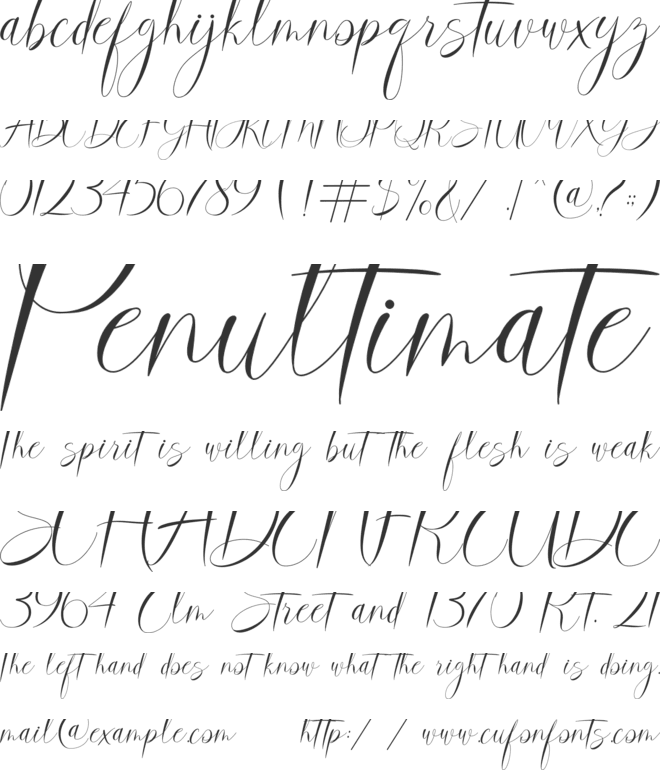 abcdefghijklmnopqrstuvwxyz
ABCDEFGHIJKLMNOPQRSTUVWXYZ
0123456789 (!#$%&/.|^(@?:;)
Penultimate
The spirit is willing but the flesh is weak
SCHADENFREUDE
3964 Elm Street and 1370 Rt. 21
The left hand does not know what the right hand is doing.
mail@example.com http:// www.cufonfonts.com